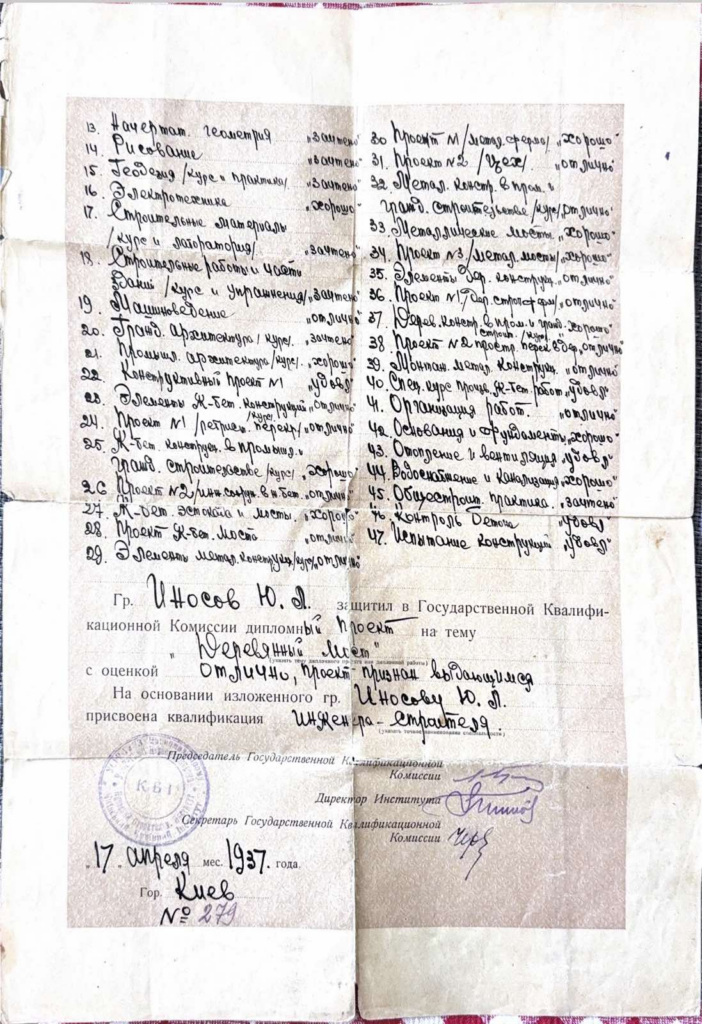 13. Начертат. геометрия „зачтено"
14. Рисование „зачтено"
15. Геодезия /курс и практика/. „зачтено"
16. Электротехника „хорошо"
17. Строительные материалы
/курс и лаборатория/ „зачтено"
18. Строительные работы и части
зданий /курс и упражнения/ „зачтено"
19. Машиноведение „отлично"
20. Гражд. архитектура /курс/. „зачтено"
21. Промышл. архитектура /курс/. „хорошо"
22. Конструктивный проект №1 „удовл"
23. Элементы ж-бет. конструкций „отлично"
/курс/
24. Проект №1 /ребрист. перекр/ „отлично"
25. Ж-бет. конструкц. в промышл. и
гражд. строительстве /курс/. „хорошо"
26. Проект №2 /инж. сооруж. в ж бет. „отлично"
27. Ж-бет. эстокада и мосты. „хорошо"
28. Проект ж-бет. моста „отлично"
29. Элементы метал. конструкц /курс/ „отлично"
30 Проект №1 /метал. ферма/ „хорошо"
31. Проект №2 /Цех/. „отлично"
32 Метал. констр. в пром. и
гражд. строительстве /курс/ „отлично"
33. Металлические мосты „хорошо"
34. Проект №3 /метал. мосты/ „хорошо"
35. Элементы дер. конструкц. „отлично"
36. Проект №1 „отлично"
37. Дерев. констр. в пром. и гражд. „хорошо"
строит. /курс/
38 Проект №2 простр. перек в дер. „отлично"
39. Монтаж. метал. конструкц. „отлично"
40. Спец. курс ж-бет. работ „удовл"
41. Организация работ. „отлично"
42. Основания и фундаменты „хорошо"
43. Отопление и вентиляция „удовл"
44 Водоснабжение и канализация „хорошо"
45. Общестроит. практика. „зачтено"
46. Контроль бетона „удовл"
47. Испытание конструкций „удовл"
Гр. Иносов Ю. Л. защитил в Государственной Квалифи-
кационной Комиссии дипломный проект на тему
„Деревянный мост"
с оценкой отлично, проект признан выдающимся
На основании изложенного гр. Иносову Ю. Л.
присвоена квалификация инженера-строителя.
Председатель Государственной Квалификационной
Комиссии
Директор Института
Секретарь Государственной Квалификационной
Комиссии
КБІ
„17" апреля мес. 1937. года.
Гор. Киев
№ 279